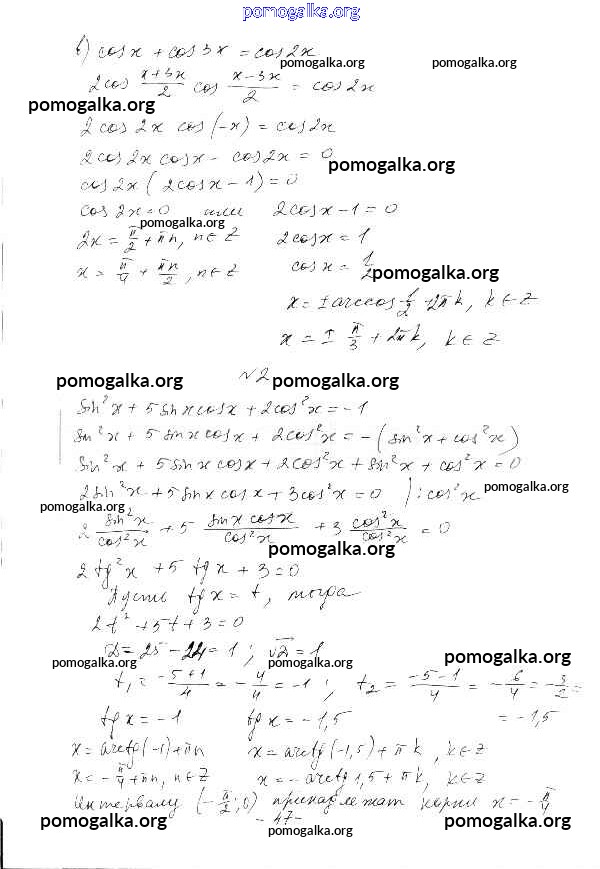 pomogalka.org
в) cos x + cos 3x = cos 2x
pomogalka.org pomogalka.org
2cos (x+3x)/2 cos (x-3x)/2 = cos 2x
pomogalka.org
2cos 2x cos(-x) = cos 2x
2cos 2x cos x - cos 2x = 0
pomogalka.org
cos 2x (2cos x - 1) = 0
cos 2x = 0 или 2cos x - 1 = 0
pomogalka.org
2x = π/2 + πn, n∈Z 2cos x = 1
x = π/4 + πn/2, n∈Z cos x = 1/2
pomogalka.org
x = ± arccos 1/2 + 2πk, k∈Z
x = ± π/3 + 2πk, k∈Z
№2
pomogalka.org pomogalka.org
sin²x + 5 sin x cos x + 2cos²x = -1
sin²x + 5 sin x cos x + 2cos²x = -(sin²x + cos²x)
pomogalka.org pomogalka.org
sin²x + 5 sin x cos x + 2cos²x + sin²x + cos²x = 0
2 sin²x + 5 sin x cos x + 3cos²x = 0 ) : cos²x
pomogalka.org
pomogalka.org
2 sin²x/cos²x + 5 sin x cos x/cos²x + 3 cos²x/cos²x = 0
pomogalka.org
2 tg²x + 5 tg x + 3 = 0
Пусть tg x = t, тогда
2t² + 5t + 3 = 0
D = 25 - 24 = 1; √D = 1
pomogalka.org pomogalka.org pomogalka.org
t₁ = (-5+1)/4 = -4/4 = -1; t₂ = (-5-1)/4 = -6/4 = -3/2 =
tg x = -1 tg x = -1,5 = -1,5
x = arctg(-1) + πn x = arctg(-1,5) + πk, k∈Z
x = -π/4 + πn, n∈Z x = -arctg 1,5 + πk, k∈Z
Интервалу (-π/2; 0) принадлежат корни x = -π/4
- 47 -
pomogalka.org pomogalka.org pomogalka.org